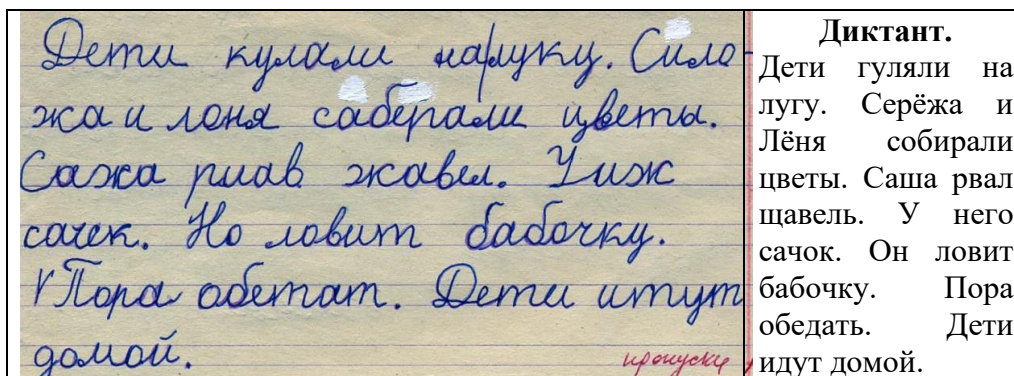 Дети кулали на|луку. Сило
жа и лоня саберали цветы.
Сажа риав жавел. Уиж
сачек. Но ловит бабочку.
V Пора обетат. Дети итут
домой.
пропуски
Диктант.
Дети гуляли на
лугу. Серёжа и
Лёня собирали
цветы. Саша рвал
щавель. У него
сачок. Он ловит
бабочку. Пора
обедать. Дети
идут домой.